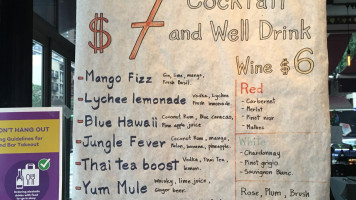 $7 Cocktail
and Well Drink
Mango Fizz Gin, lime, mango,
Fresh Basil.
Lychee lemonade Vodka, Lychee
Fresh lemonade.
Blue Hawaii Coconut Rum, Blue Curacao,
Pine apple juice
Jungle Fever Coconut Rum, Mango,
Melon, banana, pineapple.
Thai tea boost Vodka, Thai Tea,
lemon.
Yum Mule Whisky, lime juice,
Ginger beer.
Wine $6
Red
- Carbernet
- Merlot
- Pinot noir
- Malbec
White
- Chardonnay
- Pinot grigio
- Sauvignon Blanc
Rose, Plum, Brush
ON'T HANG OUT
ng Guidelines for
nd Bar Takeout